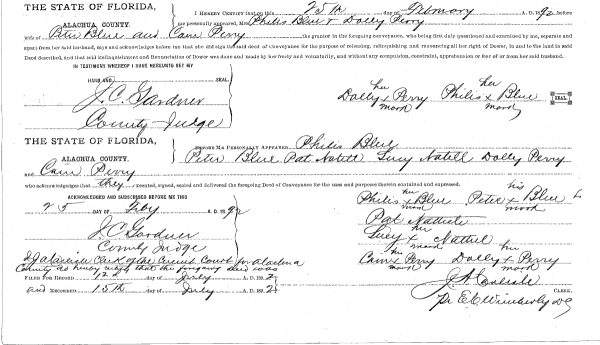 THE STATE OF FLORIDA,
ALACHUA COUNTY.
I HEREBY CERTIFY that on this 25th day of February A. D. 1892 before
me personally appeared, Mrs. Philis Blue & Dolly Perry
Wife of Peter Blue and Cain Perry the grantor in the foregoing conveyance, who being first duly questioned and examined by me, separate and
apart from her said husband, says and acknowledges before me that she did sign the said deed of Conveyance for the purpose of releasing, relinquishing and renouncing all her right of Dower, in and to the land in said
Deed described, and that said Relinquishment and Renunciation of Dower was done and made by her freely and voluntarily, and without any compulsion, constraint, apprehension or fear of or from her said husband.
IN TESTIMONY WHEREOF I HAVE HEREUNTO SET MY
HAND AND
J. C. Gardner
County Judge
her her
Dolly x Perry Philis x Blue SEAL
mark mark
THE STATE OF FLORIDA,
ALACHUA COUNTY.
BEFORE ME PERSONALLY APPEARED Philis Blue
Peter Blue Pat Nattill Lucy Natill Dolly Perry
and Cain Perry
who acknowledges that they executed, signed, sealed and delivered the foregoing Deed of Conveyance for the uses and purposes therein contained and expressed.
ACKNOWLEDGED AND SUBSCRIBED BEFORE ME THIS
25 DAY OF Feby A. D. 1892
J. C. Gardner
County Judge
her his
Philis x Blue Peter x Blue
mark mark
Pat Nattiel
her
Lucy x Nattiel
mark
his her
Cain x Perry Dolly x Perry
mark mark
Clerk of the Circuit Court for Alachua
County do hereby certify that the foregoing deed was
FILED FOR RECORD 12th day of July A. D. 1892
and RECORDED 15th day of July A. D. 1892
J. A. Carlisle
CLERK.
Pr E. C. Wimberly DC